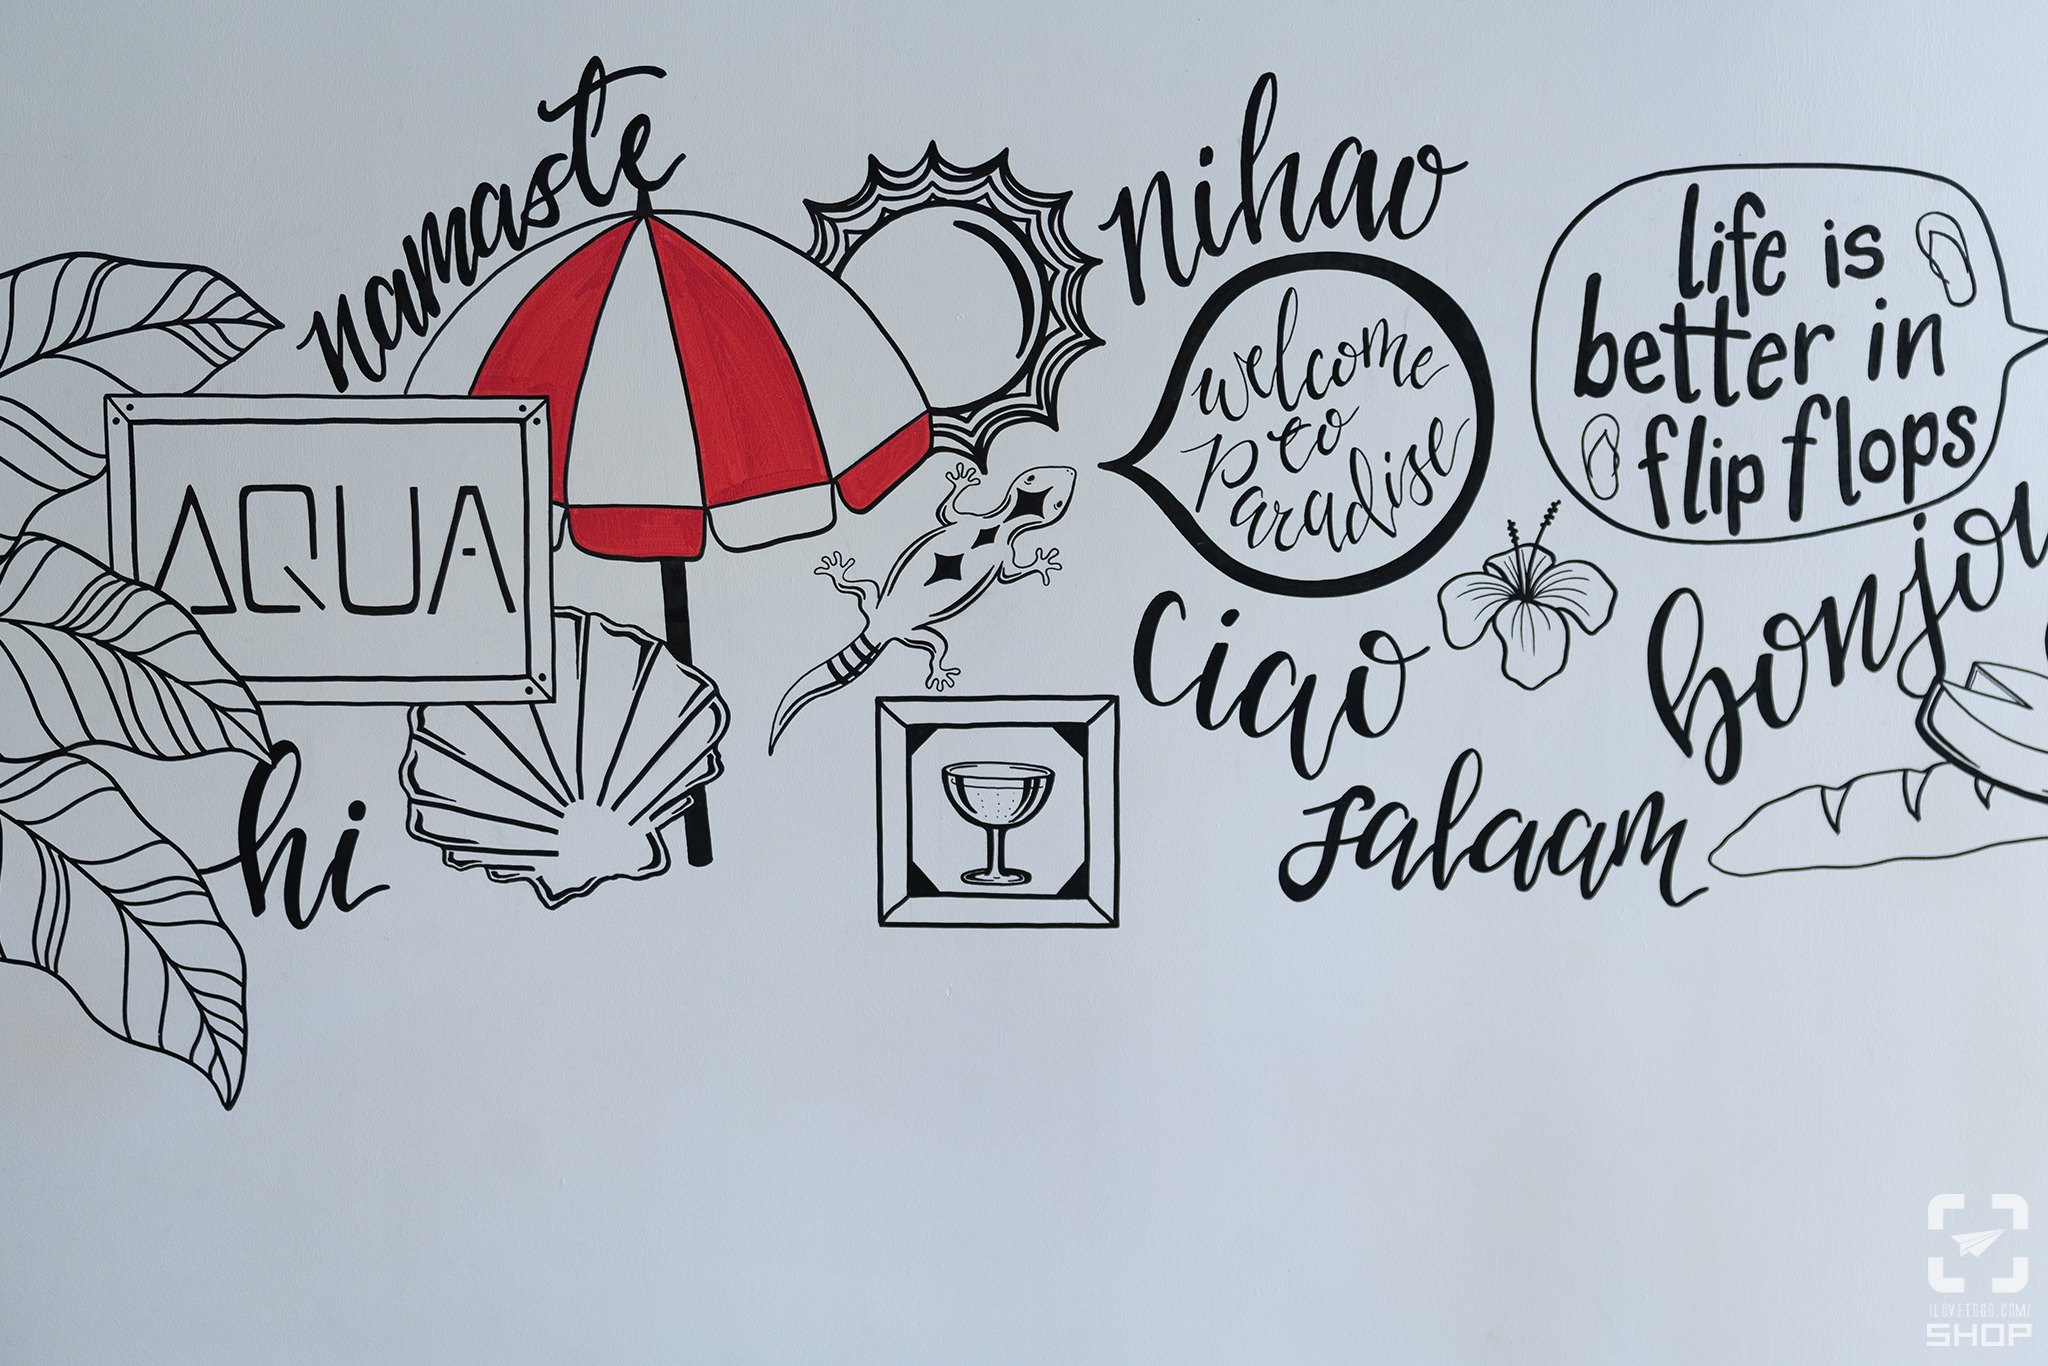 namaste
AQUA
hi
nihao
welcome
to
paradise
life is
better in
flip flops
ciao
bonjou
salaam
ILOVETOGO.COM/
SHOP